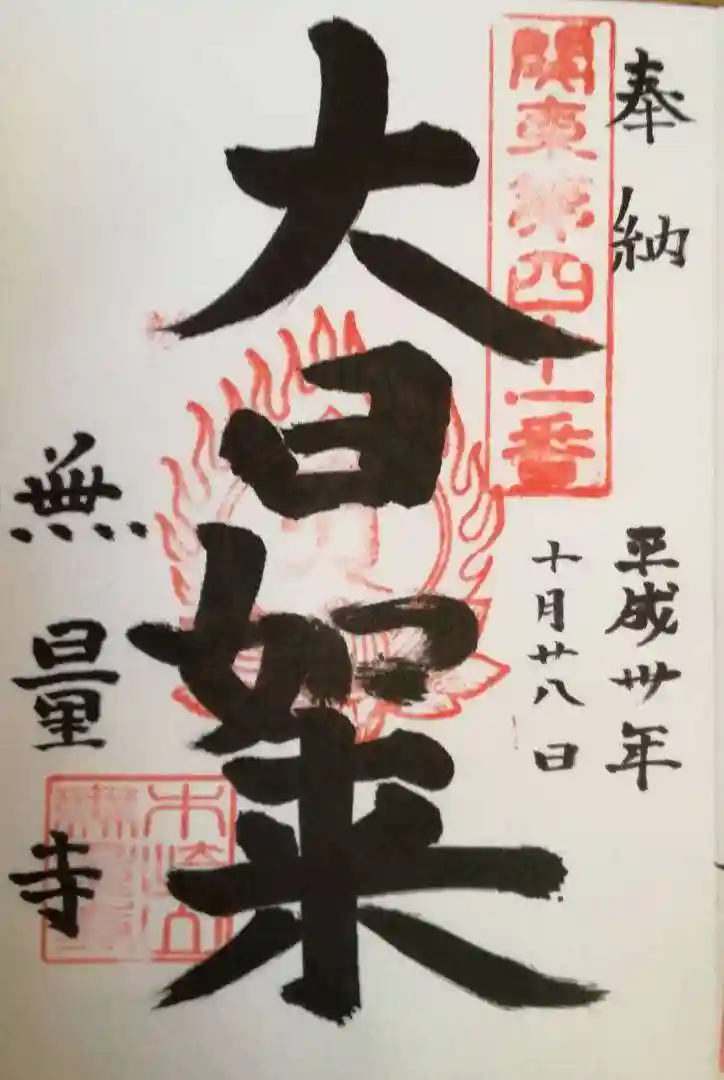 奉納
平成卅年
關東第四十一番
十月廿八日
大日如来
無量寺